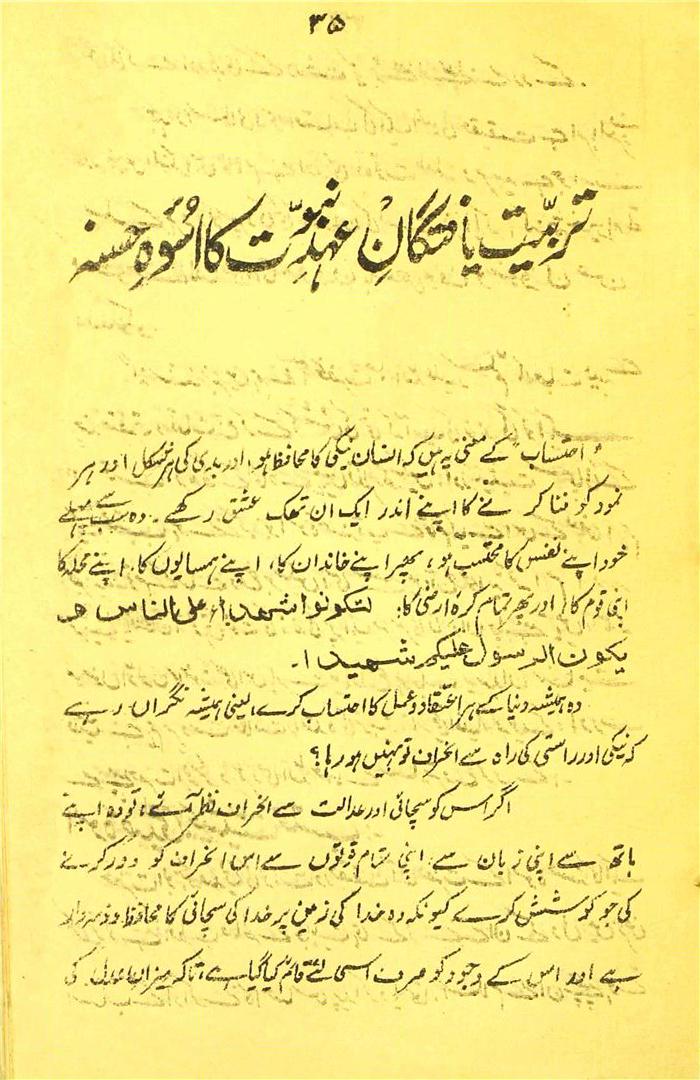 ۳۵
تربیّت یافتگانِ عہدِ نبوّت کا اُسوۂ حسنہ
"احتساب" کے معنی یہ ہیں کہ انسان نیکی کا محافظ ہو، اور بدی کی ہر شکل اور ہر
نمود کو فنا کرنے کا اپنے اندر ایک ان تھک عشق رکھے۔ وہ سب سے پہلے
خود اپنے نفس کا محتسب ہو، پھر اپنے خاندان کا، اپنے ہمسایوں کا، اپنے محلہ کا
اپنی قوم کا، اور پھر تمام کرۂ ارضی کا: لتکونوا شہداء علی الناس و
یکون الرسول علیکم شہیدا۔
وہ ہمیشہ دنیا کے ہر اعتقاد و عمل کا احتساب کرے، یعنی ہمیشہ نگراں رہے
کہ نیکی اور راستی کی راہ سے انحراف تو نہیں ہو رہا؟
اگر اس کو سچائی اور عدالت سے انحراف نظر آئے، تو وہ اپنے
ہاتھ سے اپنی زبان سے، اپنی تمام قوتوں سے اس انحراف کو دور کرنے
کی جو کوشش کرے کیونکہ وہ خدا کی زمین پر خدا کی سچائی کا محافظ و ذمہ دار
ہے اور اس کے وجود کو صرف اسی لئے قائم کیا گیا ہے، تاکہ میزان عدل کی